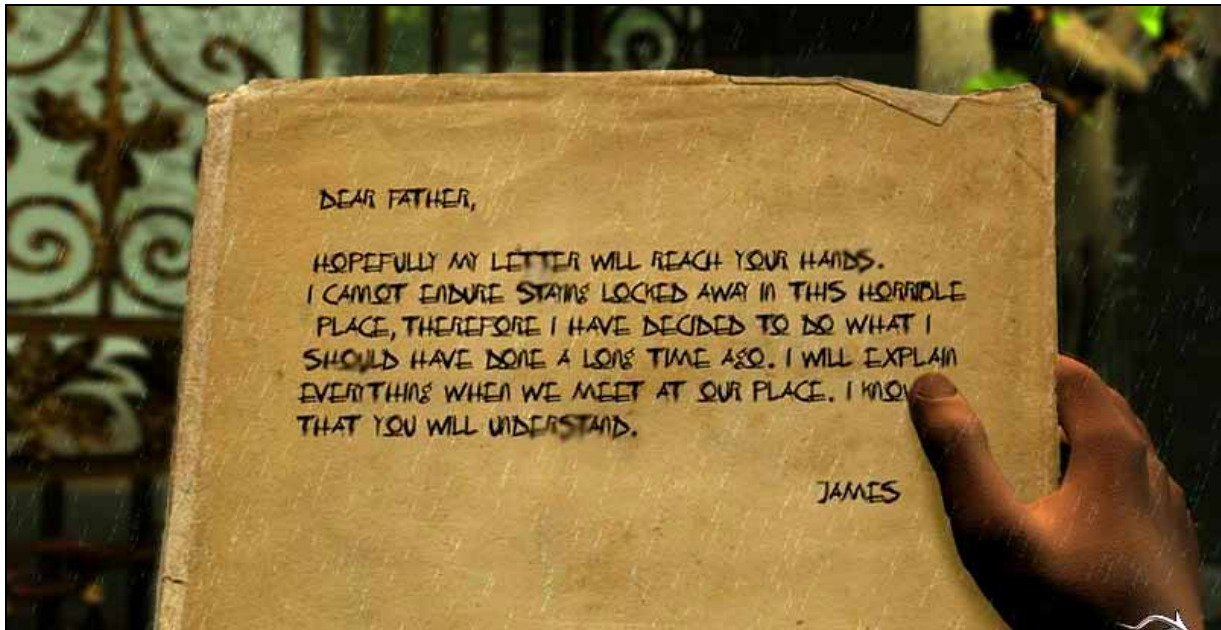 DEAR FATHER,
HOPEFULLY MY LETTER WILL REACH YOUR HANDS.
I CANNOT ENDURE STAYING LOCKED AWAY IN THIS HORRIBLE
PLACE, THEREFORE I HAVE DECIDED TO DO WHAT I
SHOULD HAVE DONE A LONG TIME AGO. I WILL EXPLAIN
EVERYTHING WHEN WE MEET AT OUR PLACE. I KNOW
THAT YOU WILL UNDERSTAND.
JAMES